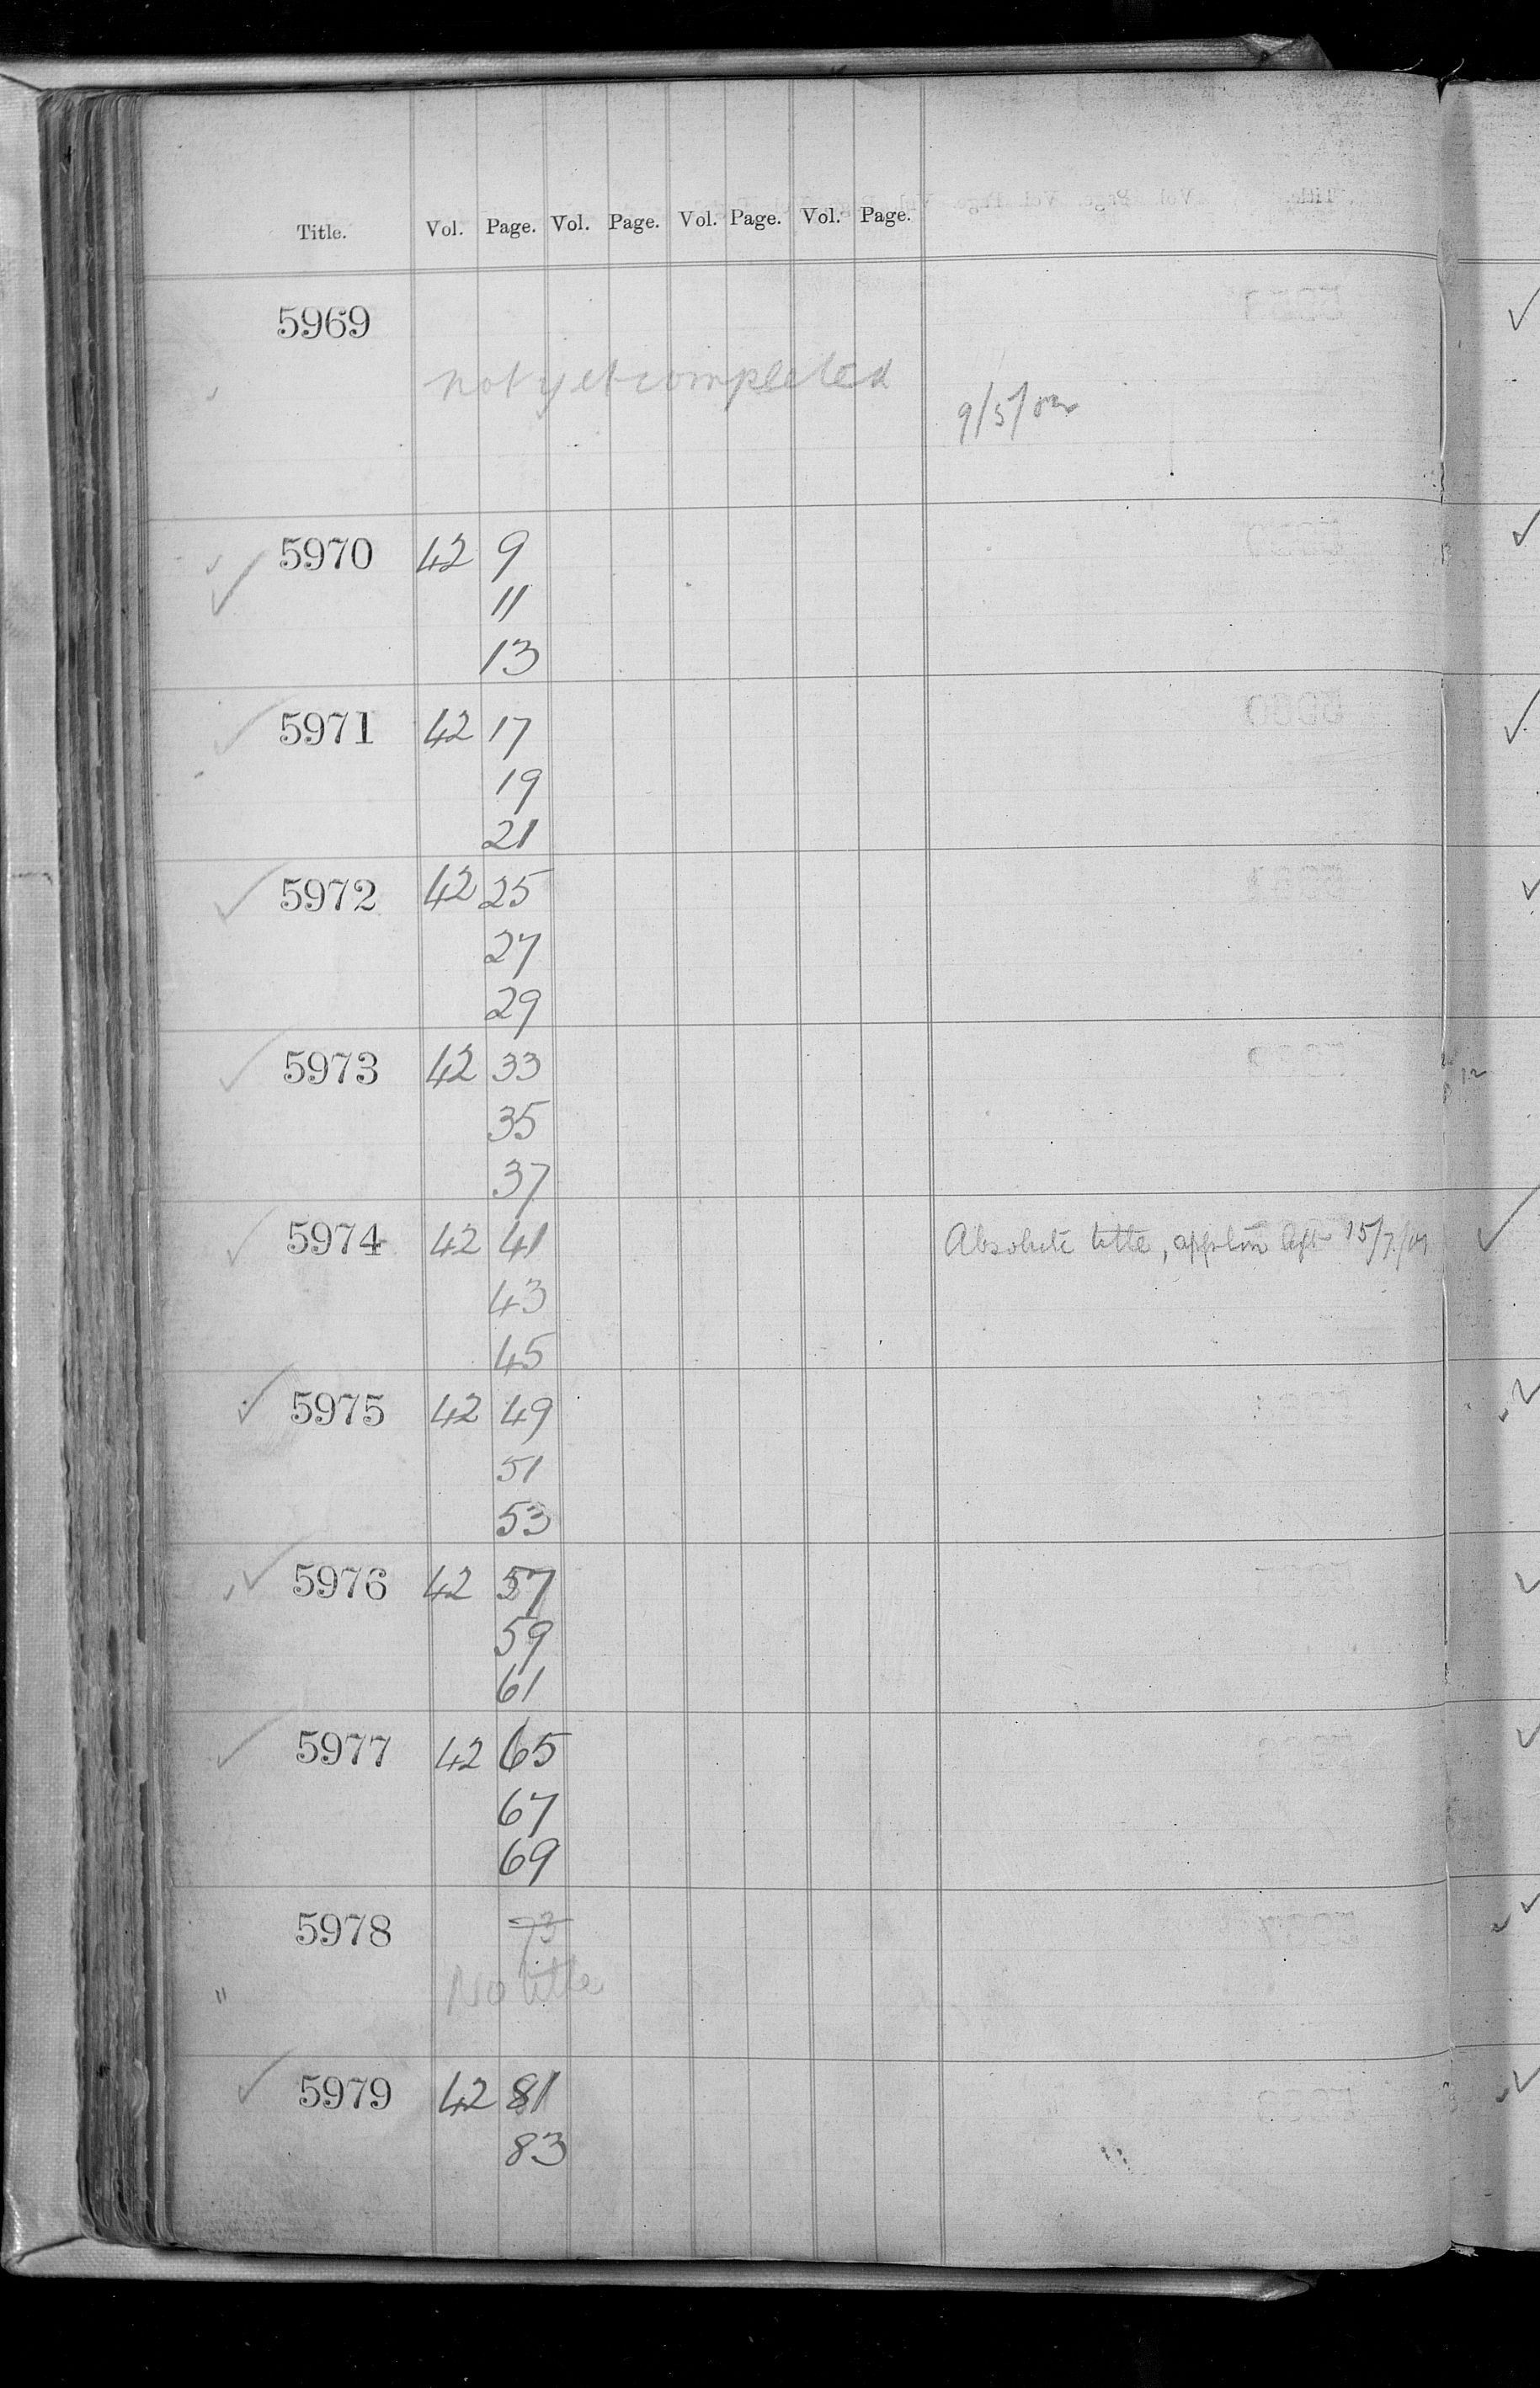 Title. Vol. Page. Vol. Page. Vol. Page. Vol. Page.
5969
not yet completed
9/5/02
5970 42 9
11
13
5971 42 17
19
21
5972 42 25
27
29
5973 42 33
35
37
5974 42 41 Absolute title, appltn left 15/7/
43
45
5975 42 49
51
53
5976 42 57
59
61
5977 42 65
67
69
5978 73
No title
5979 42 81
83